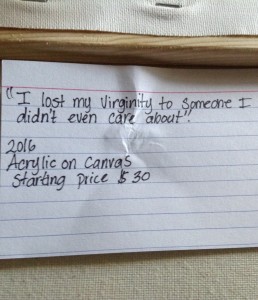 "I lost my virginity to someone I
didn't even care about".
2016
Acrylic on Canvas
Starting price $30